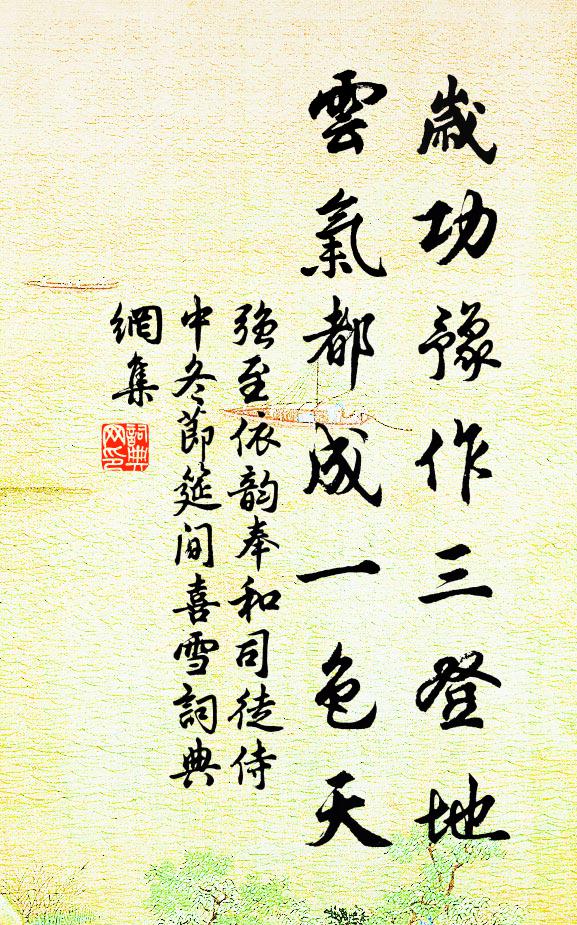 歲功豫作三登地
雲氣都成一色天
強至依韵奉和司徒侍
中冬節筵間喜雪詞典
網集
詞典
网印